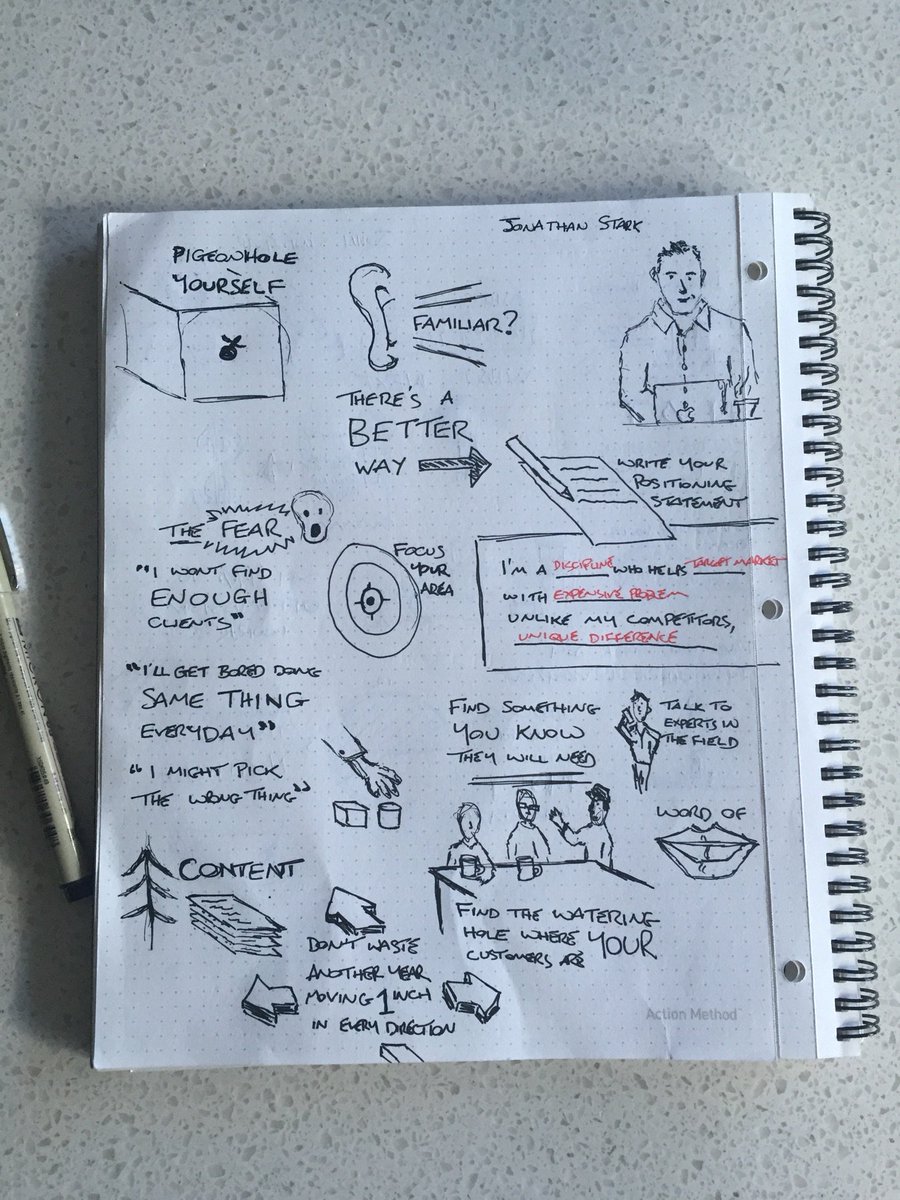 JONATHAN STARK
PIGEONHOLE
YOURSELF
FAMILIAR?
THERE'S A
BETTER
WAY
WRITE YOUR
POSITIONING
STATEMENT
THE FEAR
"I WONT FIND
ENOUGH
CLIENTS"
FOCUS
YOUR
AREA
I'M A DISCIPLINE WHO HELPS TARGET MARKET
WITH EXPENSIVE PROBLEM
UNLIKE MY COMPETITORS,
UNIQUE DIFFERENCE
"I'LL GET BORED DOING
SAME THING
EVERYDAY"
"I MIGHT PICK
THE WRONG THING"
FIND SOMETHING
YOU KNOW
THEY WILL NEED
TALK TO
EXPERTS IN
THE FIELD
WORD OF
CONTENT
FIND THE WATERING
HOLE WHERE YOUR
CUSTOMERS ARE
DON'T WASTE
ANOTHER YEAR
MOVING 1 INCH
IN EVERY DIRECTION
Action Method